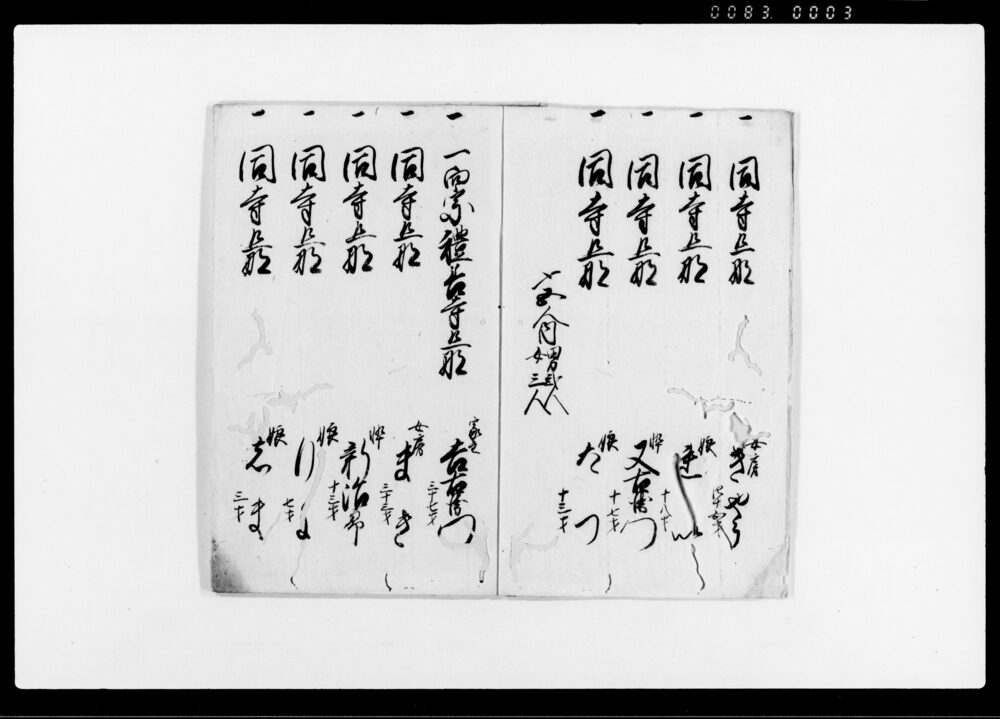 0083 0003
一 同寺旦那 女房
一 同寺旦那 娘
一 同寺旦那 忰 又右衛門 十七才
一 同寺旦那 娘 たつ 十三才
〆五人内 男弐人 女三人
一 一向宗禮善寺旦那 家主 吉右衛門 三十七才
一 同寺旦那 女房 まき 三十三才
一 同寺旦那 忰 新治郎 十三才
一 同寺旦那 娘 りよ 七才
一 同寺旦那 娘 志ま 三才